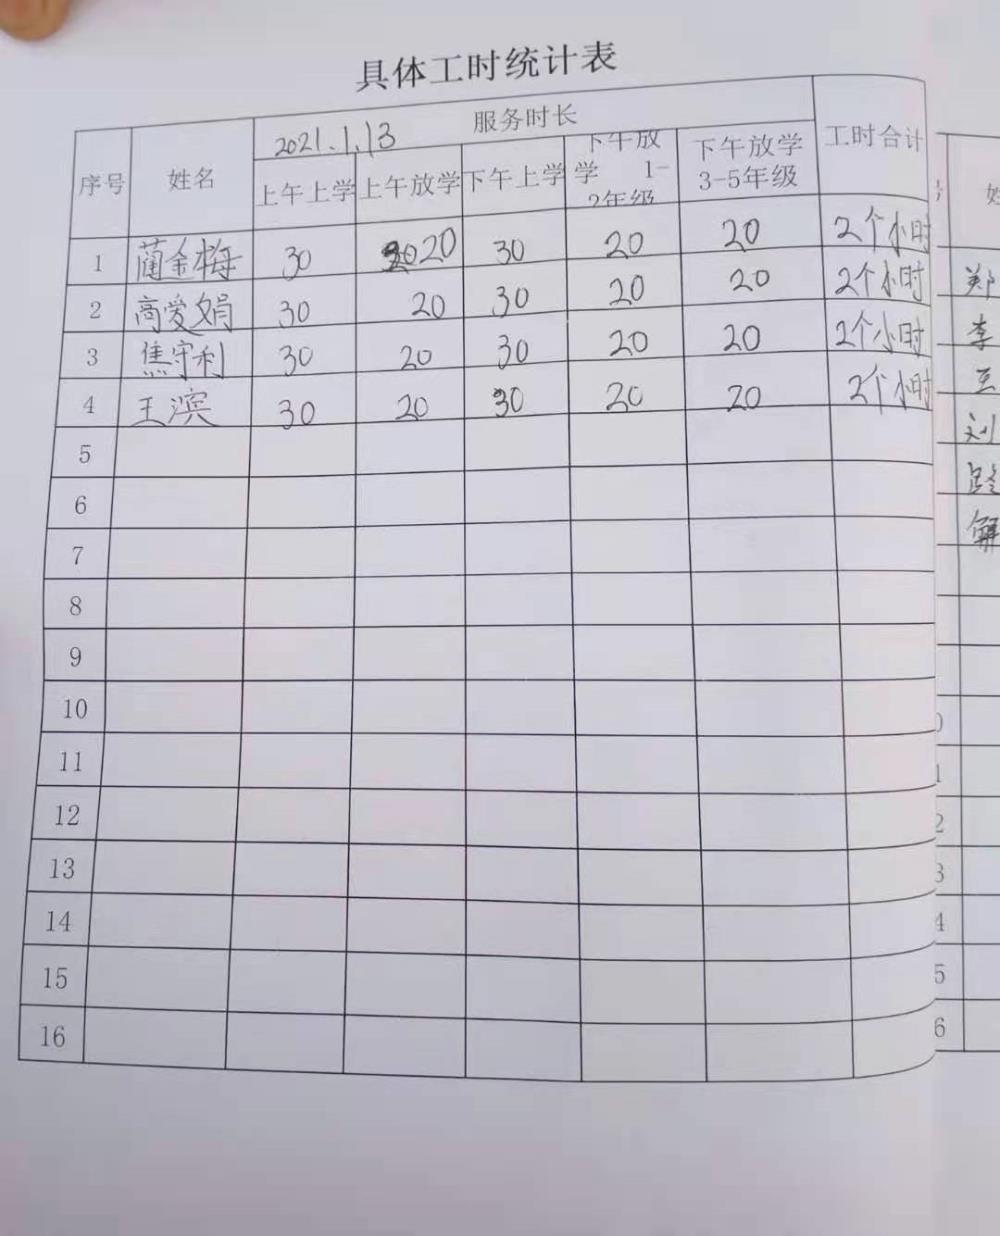 具体工时统计表
序号 姓名 2021.1.13 服务时长 工时合计
上午上学 上午放学 下午上学 下午放学 1-2年级 下午放学 3-5年级
1 蔺金梅 30 20 30 20 20 2个小时
2 高爱娟 30 20 30 20 20 2个小时
3 焦守利 30 20 30 20 20 2个小时
4 王滨 30 20 30 20 20 2个小时
5
6
7
8
9
10
11
12
13
14
15
16
郑
李
王
刘
解